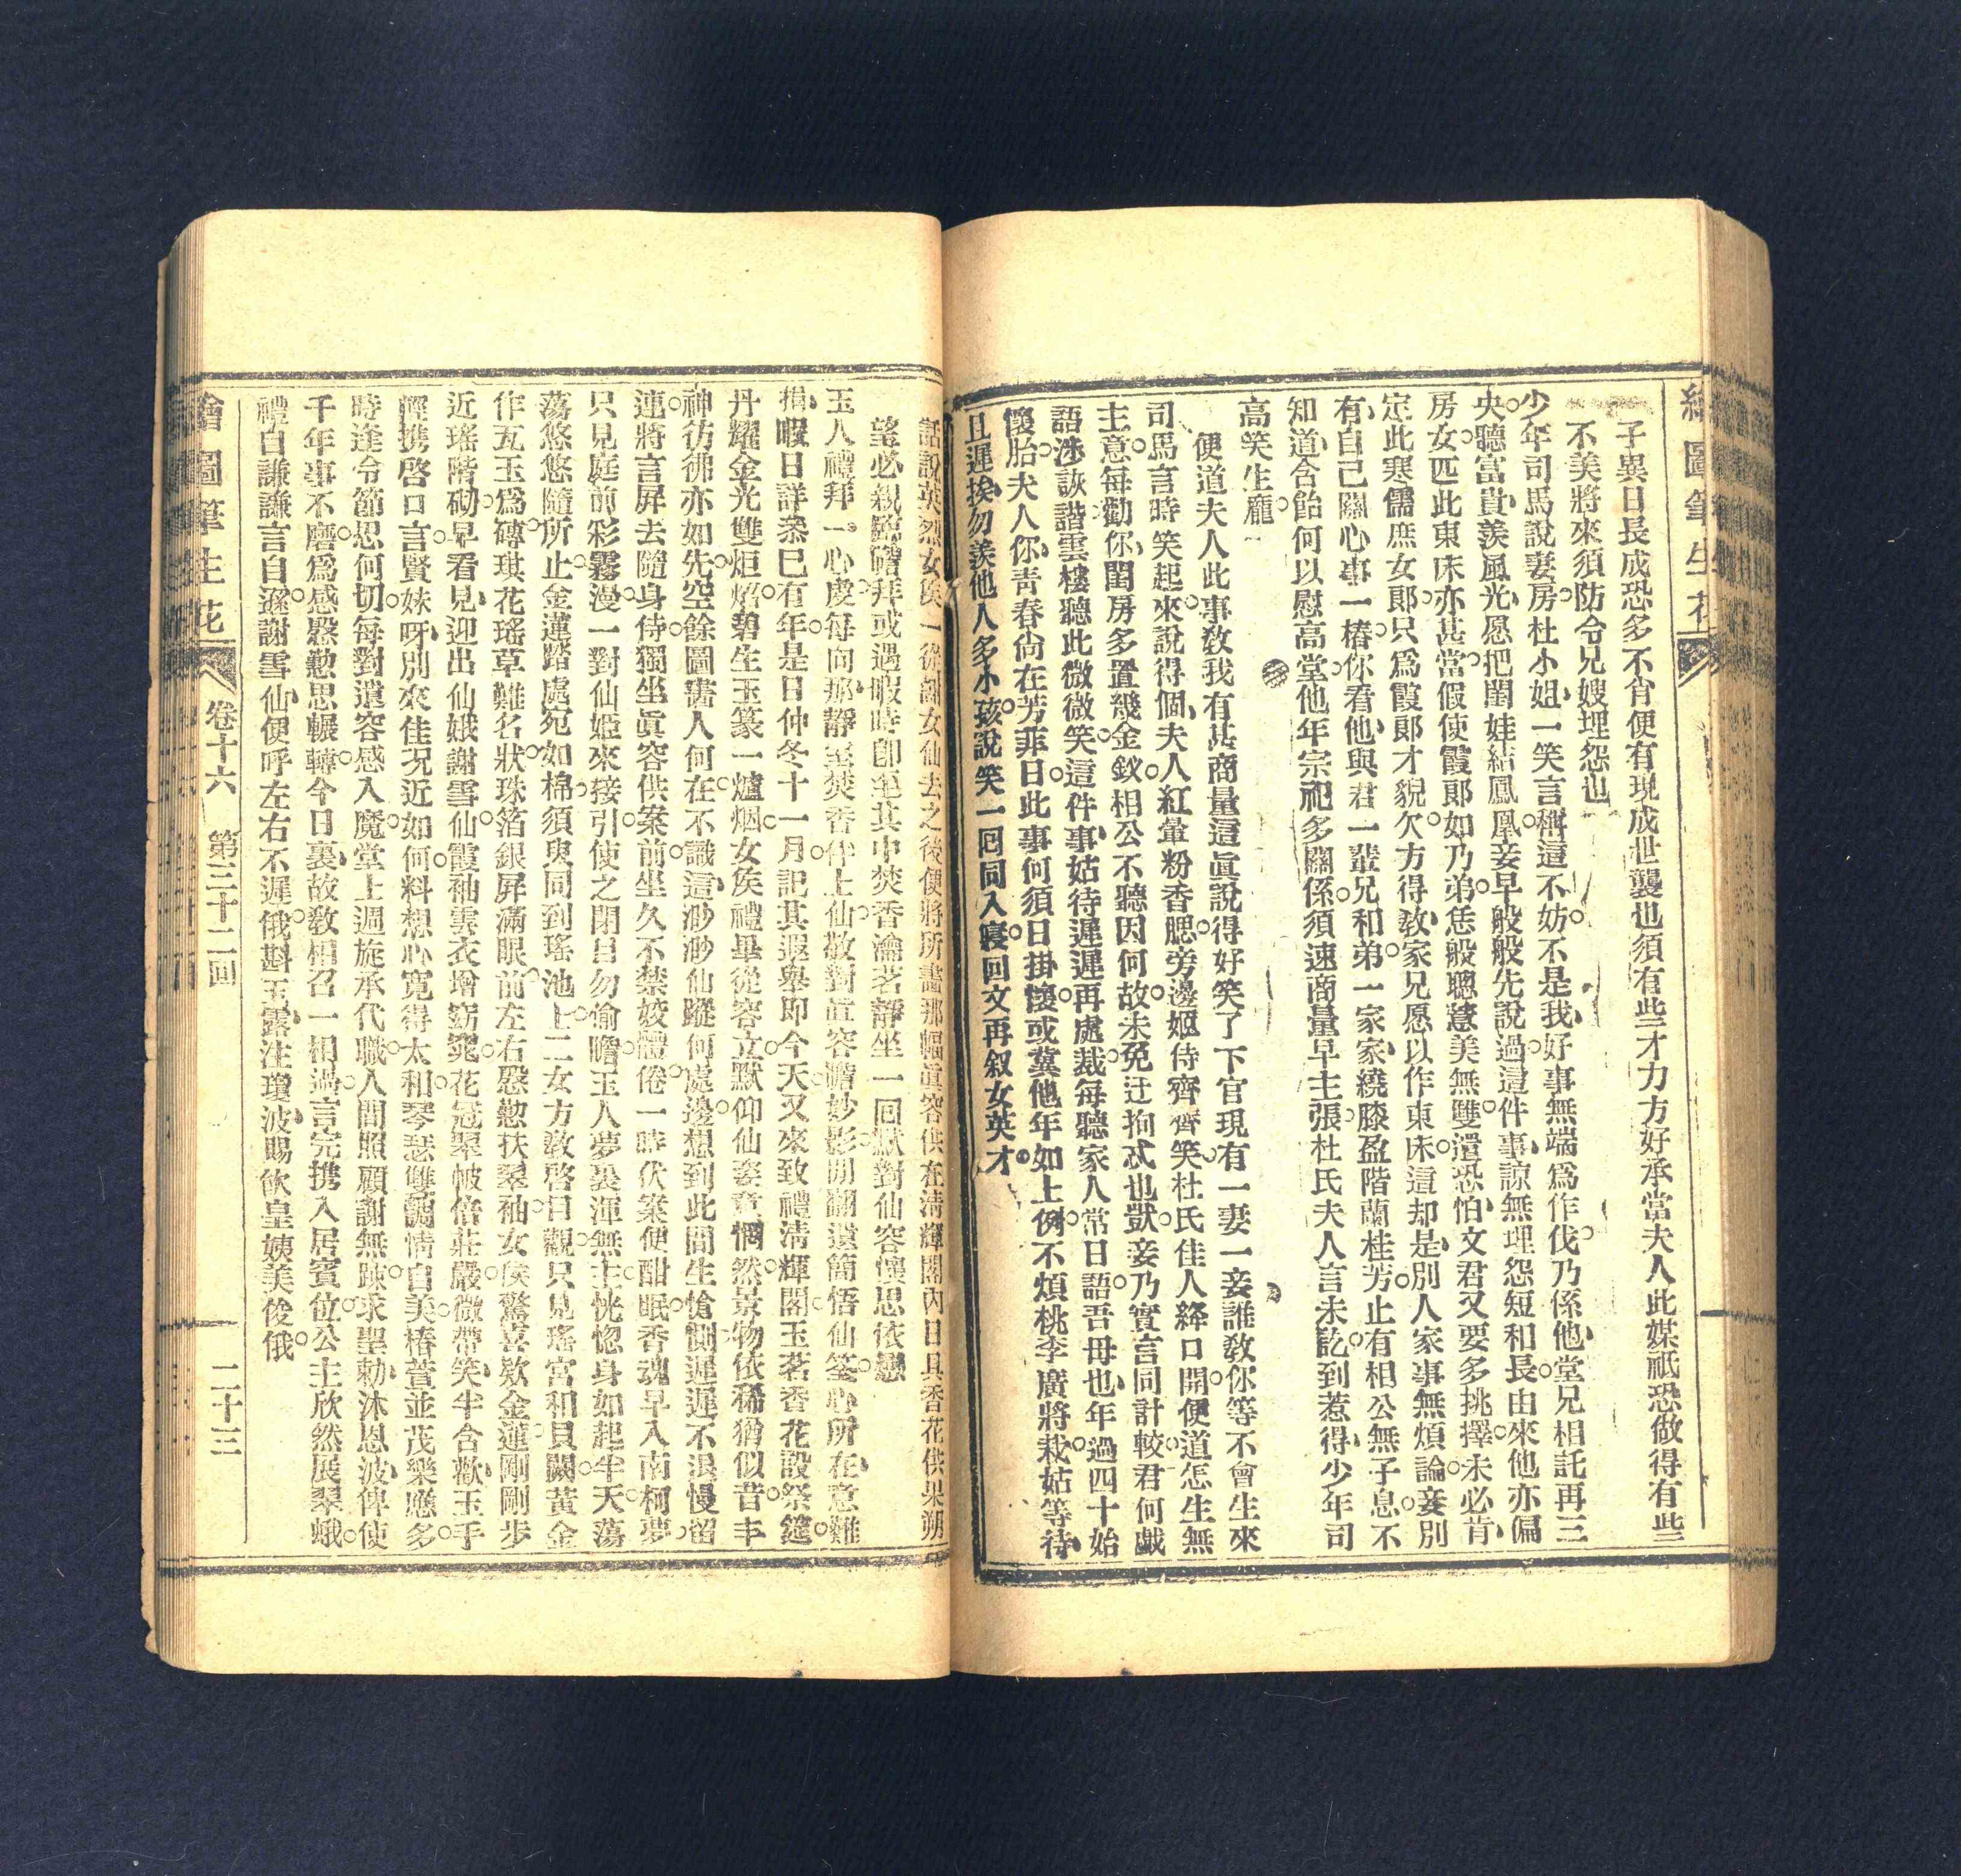 繪圖筆生花
子異日長成恐多不肖便有現成世襲也須有些才力方好承當夫人此媒祗恐做得有些
不美將來須防令兄嫂埋怨也
少年司馬說妻房杜小姐一笑言稱這不妨不是我好事無端爲作伐乃係他堂兄相託再三
央聽富貴羨風光愿把閨娃結鳳凰妾早般般先說過這件事諒無埋怨短和長由來他亦偏
房女匹此東床亦甚當假使霞郞如乃弟恁般聰慧美無雙還恐怕文君又要多挑擇未必肯
定此寒儒庶女郞只爲霞郞才貌欠方得教家兄愿以作東床這却是別人家事無煩論妾別
有自己關心事一樁你看他與君一輩兄和弟一家家繞膝盈階蘭桂芳止有相公無子息不
知道含飴何以慰高堂他年宗祀多關係須速商量早主張杜氏夫人言未訖到惹得少年司
高笑生龐
便道夫人此事敎我有甚商量這眞說得好笑了下官現有一妻一妾誰敎你等不會生來
司馬言時笑起來說得個夫人紅暈粉香腮旁邊姬侍齊齊笑杜氏佳人絳口開便道怎生無
主意每勸你閨房多置幾金釵相公不聽因何故未免迂拘忒也獃妾乃實言同計較君何戲
語涉詼諧雲樓聽此微微笑這件事姑待遲遲再處裁每聽家人常日語吾母也年過四十始
懷胎夫人你靑春尙在芳菲日此事何須日掛懷或冀他年如上例不煩桃李廣將栽姑等待
且遲挨勿羨他人多小孩說笑一囘同入寢回文再叙女英才
話說英烈女侯一從謝女仙去之後便將所畵那幅眞容供在淸輝閣內日具香花供果朔
望必親躬禮拜或遇暇時卽至其中焚香瀹茗靜坐一囘默對仙容懷思依戀
玉人禮拜一心虔每向那靜室焚香伴上仙敬對眞容瞻妙影閒翻遺簡悟仙筌心所在意難
捐暇日詳叅已有年是日仲冬十一月記其遐舉即今天又來致禮淸輝閣玉茗香花設祭筵
丹耀金光雙炬焰碧生玉篆一爐烟女侯禮畢從容立默仰仙姿意惘然景物依稀猶似昔丰
神彷彿亦如先空餘圖畵人何在不識這渺渺仙蹤何處邊想到此間生愴惻遲遲不退慢留
連將言屛去隨身侍獨坐眞容供案前坐久不禁姣體倦一時伏案便酣眠香魂早入南柯夢
只見庭前彩霧漫一對仙姬來接引使之閉目勿偷瞻玉人夢裏渾無主恍惚身如起半天蕩
蕩悠悠隨所止金蓮踏處宛如棉須臾同到瑤池上二女方敎啓目觀只見瑤宮和貝闕黃金
作瓦玉爲磚琪花瑤草難名狀珠箔銀屛滿眼前左右慇懃扶翠袖女侯驚喜欵金蓮剛剛步
近瑤階砌早看見迎出仙娥謝雪仙霞袖雲衣增窈窕花冠翠帔倍莊嚴微帶笑半含歡玉手
輕携啓口言賢妹呀別來佳况近如何料想心寬得太和琴瑟雙調情自美椿萱並茂樂應多
時逢令節思何切每對遺容感入魔堂上週旋承代職人間照顧謝無踈求聖勅沐恩波俾使
千年事不磨爲感慇懃思輾轉今日裏故敎相召一相過言完携入居賓位公主欣然展翠蛾
禮自謙謙言自遜謝雪仙便呼左右不遲俄斟玉露注瓊波賜飮皇姨美俊俄
繪圖筆生花 卷十六 第三十二囘 二十三